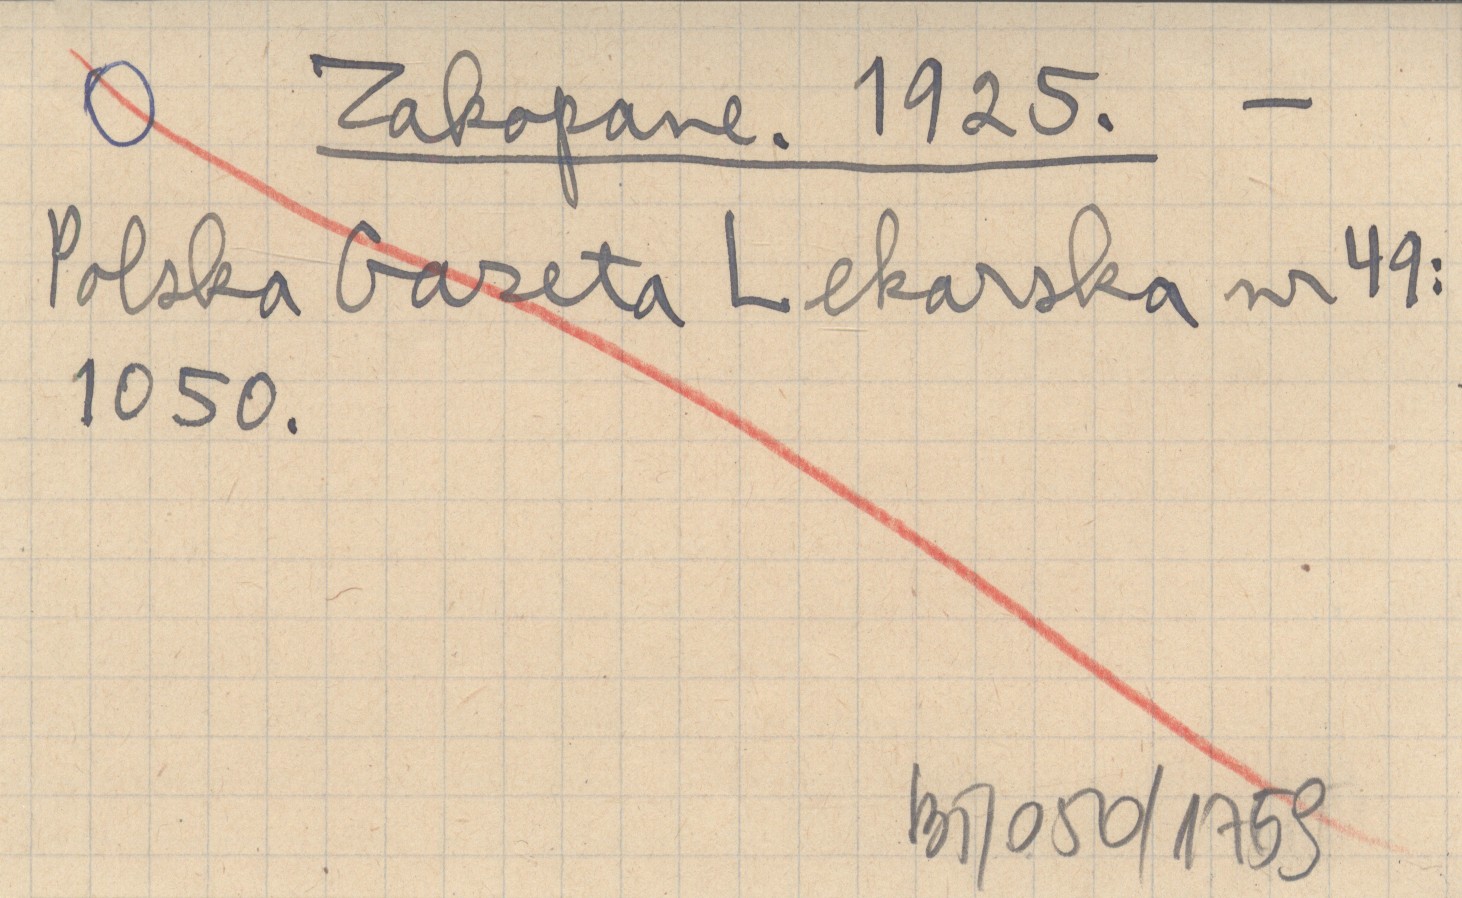 Zakopane. 1925. —
Polska Gazeta Lekarska nr 49:
1050.
/050/1759